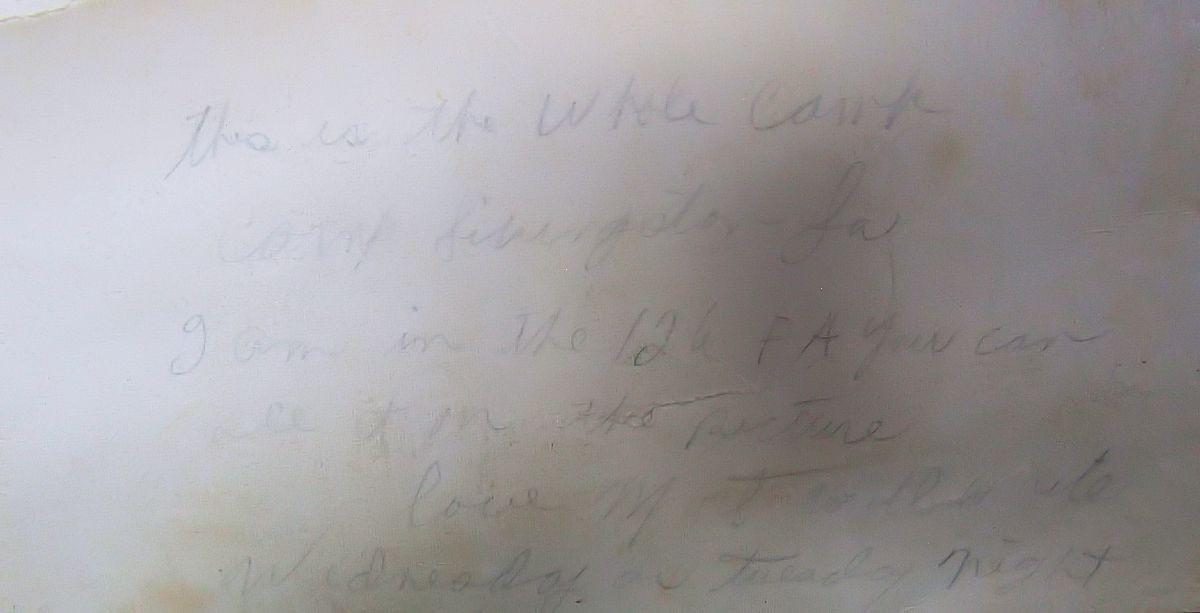 this is the Whole Camp
Camp Livingston La
I am in the 126 FA You can
see it in the picture
love M I will
Wednesday or tuesday night